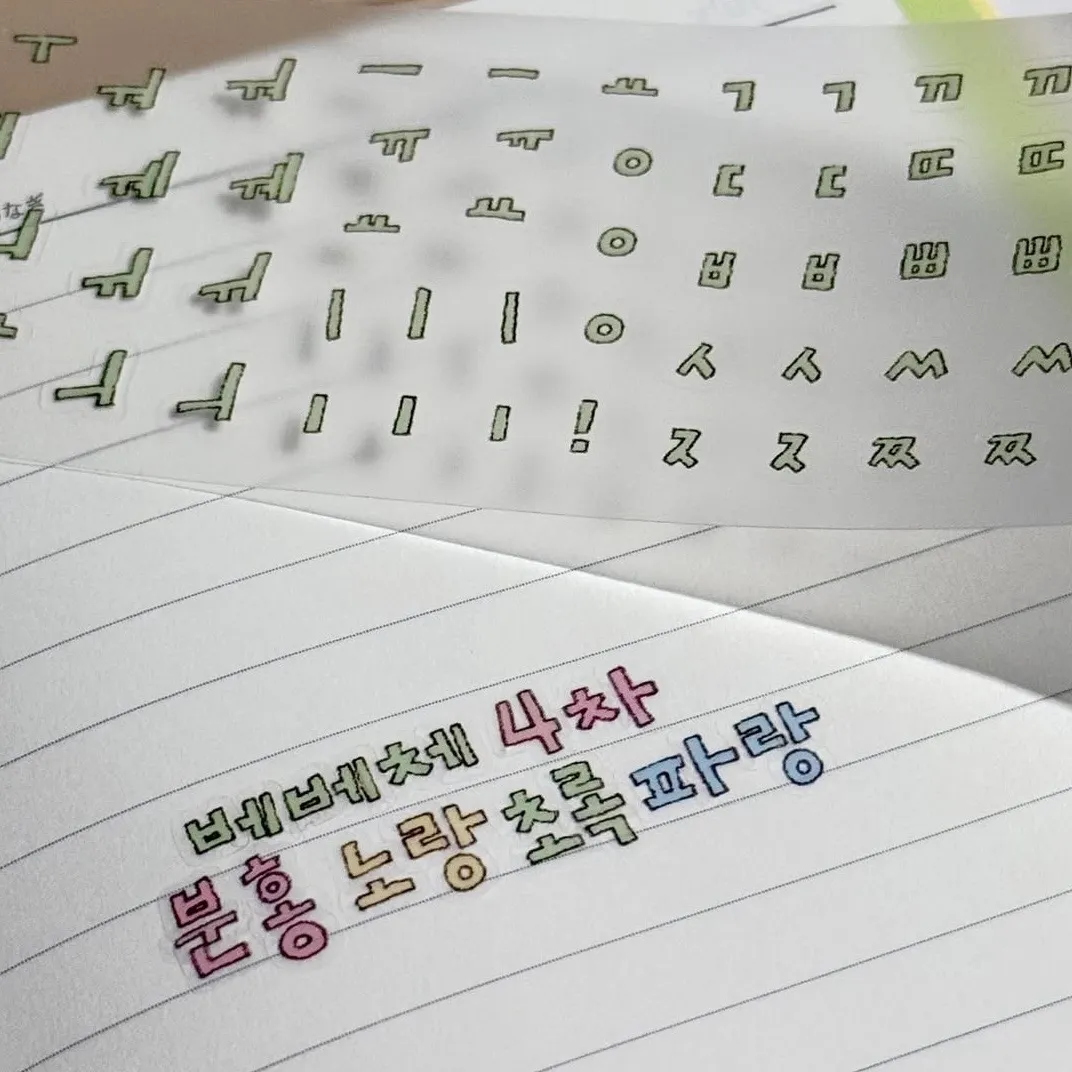 ㅜ ㅝ ㅝ ㅡ ㅡ ㅛ ㄱ ㄱ ㄲ ㄲ
ㅞ ㅞ ㅠ ㅠ ㅇ ㄷ ㄷ ㄸ ㄸ
ㅛ ㅛ ㅇ ㅂ ㅂ ㅃ ㅃ
ㅣ ㅣ ㅣ ㅇ ㅅ ㅅ ㅆ ㅆ
ㅣ ㅣ ㅣ ! ㅈ ㅈ ㅉ ㅉ
베베체 4차
분홍 노랑 초록 파랑